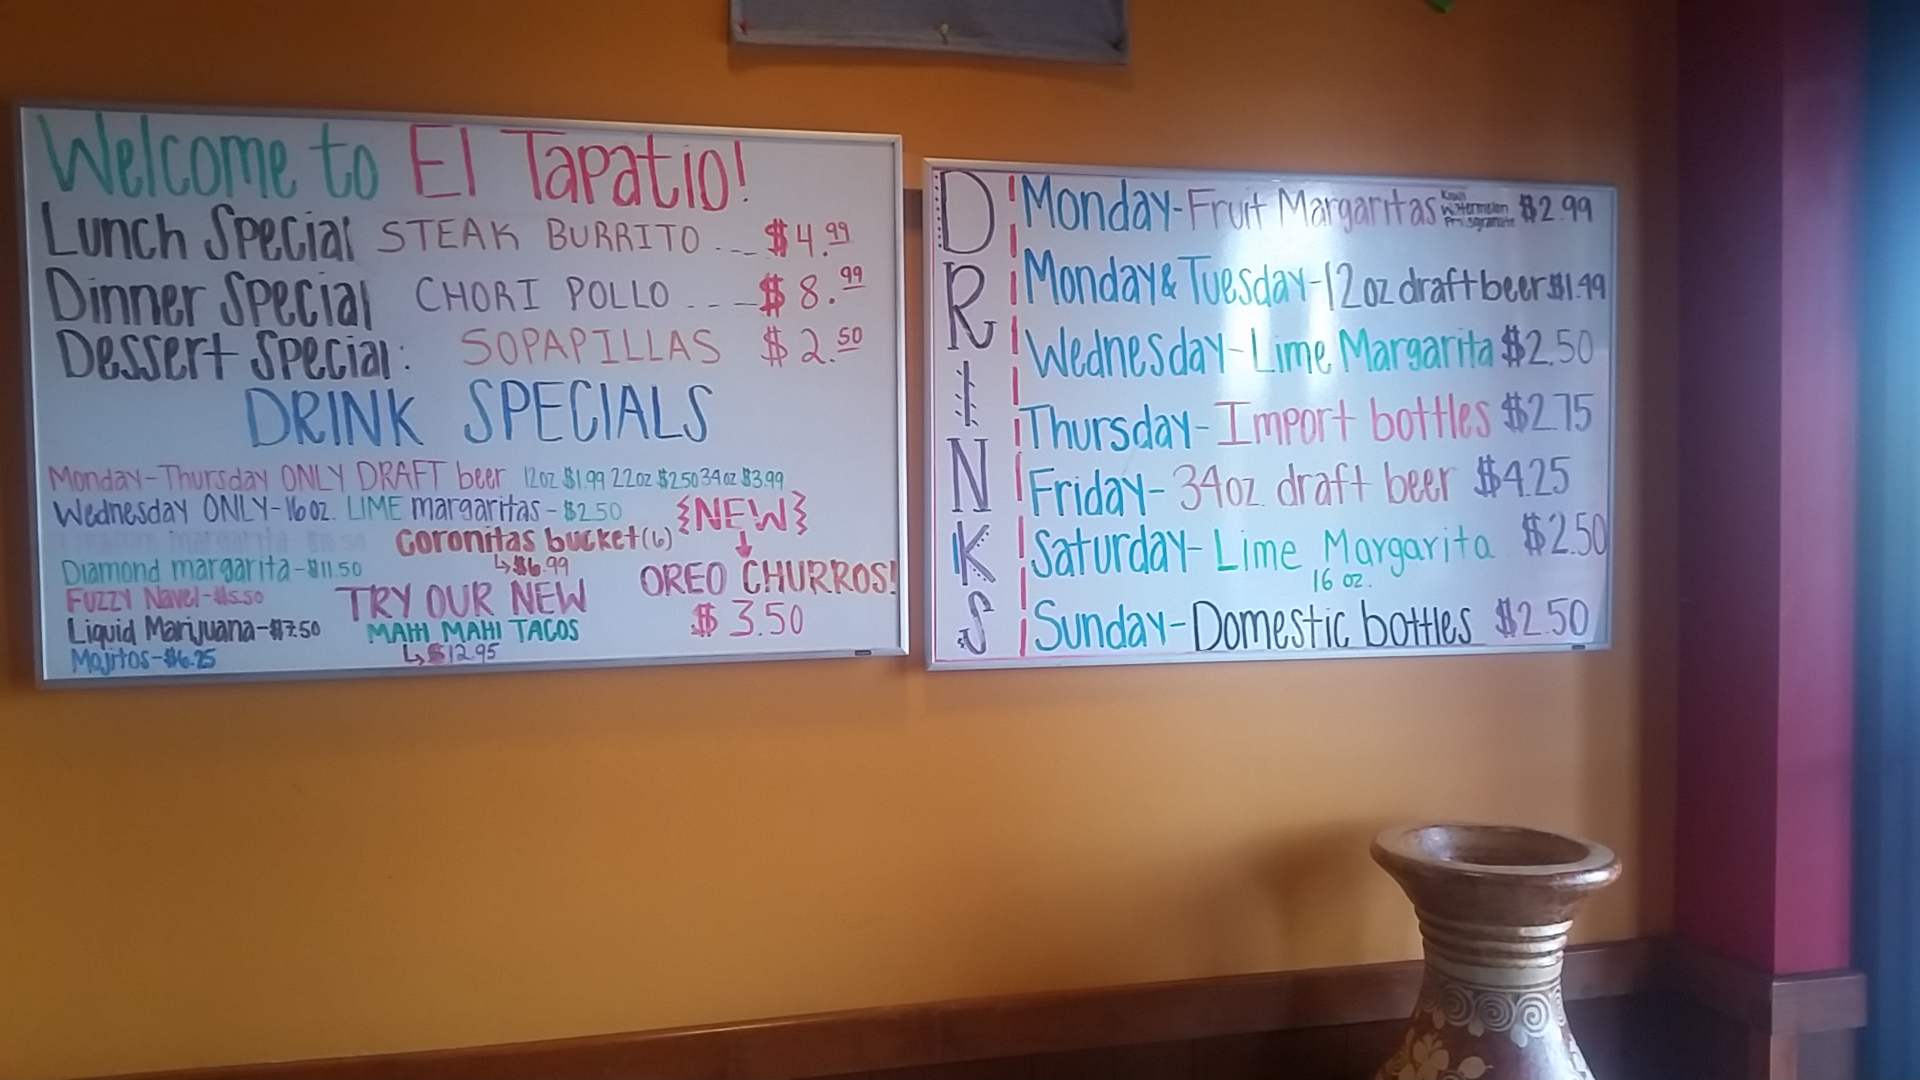 Welcome to El Tapatio!
Lunch Special STEAK BURRITO ... $4.99
Dinner Special CHORI POLLO ... $8.99
Dessert Special: SOPAPILLAS $2.50
DRINK SPECIALS
Monday-Thursday ONLY DRAFT beer 12oz $1.99 22oz $2.50 34oz $3.99
Wednesday ONLY-16oz. LIME margaritas-$2.50
{NEW}
Coronitas bucket(6)
↳$6.99
OREO CHURROS!
$3.50
Diamond margarita-$11.50
Fuzzy Navel-$5.50
Liquid Marijuana-$7.50
Mojitos-$6.25
TRY OUR NEW
MAHI MAHI TACOS
↳$12.95
DRINKS
Monday-Fruit Margaritas Kiwi Watermelon $2.99
Monday & Tuesday-12oz draft beer $1.99
Wednesday-Lime Margarita $2.50
Thursday-Import bottles $2.75
Friday-34oz. draft beer $4.25
Saturday-Lime Margarita $2.50
16 oz.
Sunday-Domestic bottles $2.50